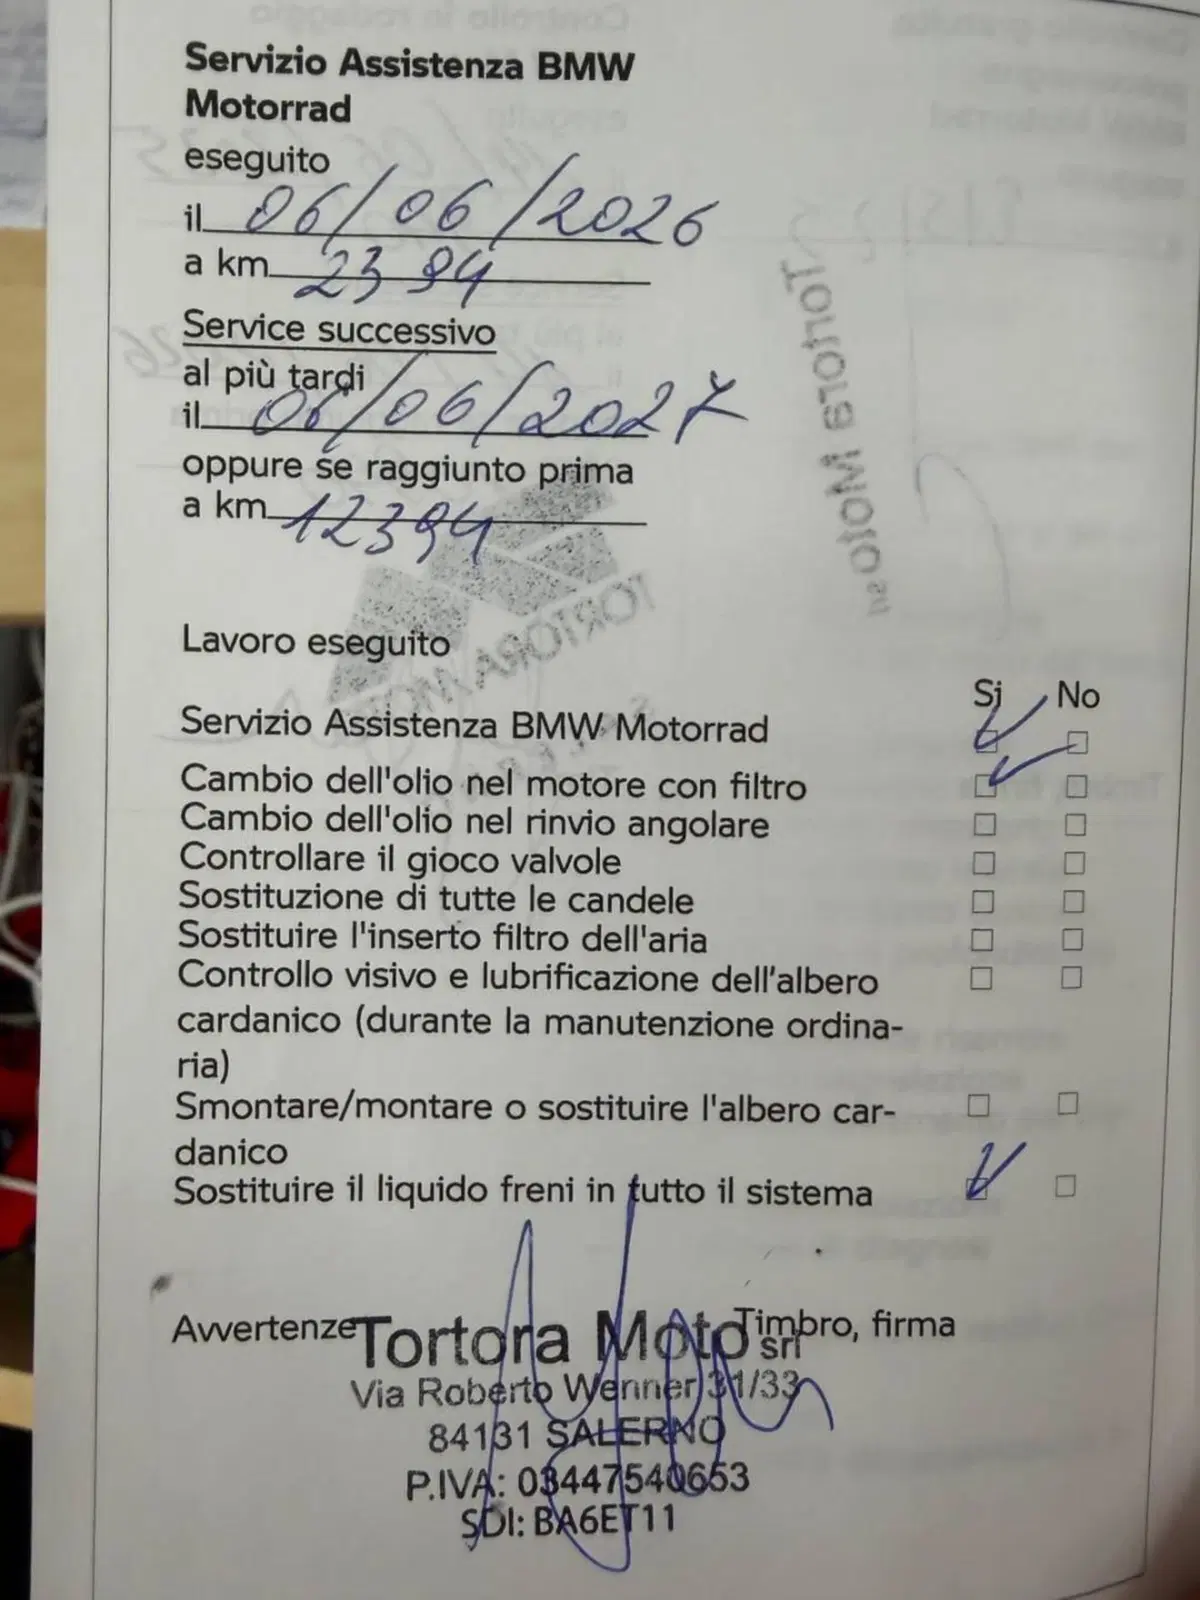 Servizio Assistenza BMW
Motorrad
eseguito
il 06/06/2026
a km 2394
Service successivo
al più tardi
il 06/06/2027
oppure se raggiunto prima
a km 12394
Lavoro eseguito
Si No
Servizio Assistenza BMW Motorrad
Cambio dell'olio nel motore con filtro
Cambio dell'olio nel rinvio angolare
Controllare il gioco valvole
Sostituzione di tutte le candele
Sostituire l'inserto filtro dell'aria
Controllo visivo e lubrificazione dell'albero
cardanico (durante la manutenzione ordina-
ria)
Smontare/montare o sostituire l'albero car-
danico
Sostituire il liquido freni in tutto il sistema
Avvertenze Timbro, firma
Tortora Moto srl
Via Roberto Wenner 31/33
84131 SALERNO
P.IVA: 03447540653
SDI: BA6ET11